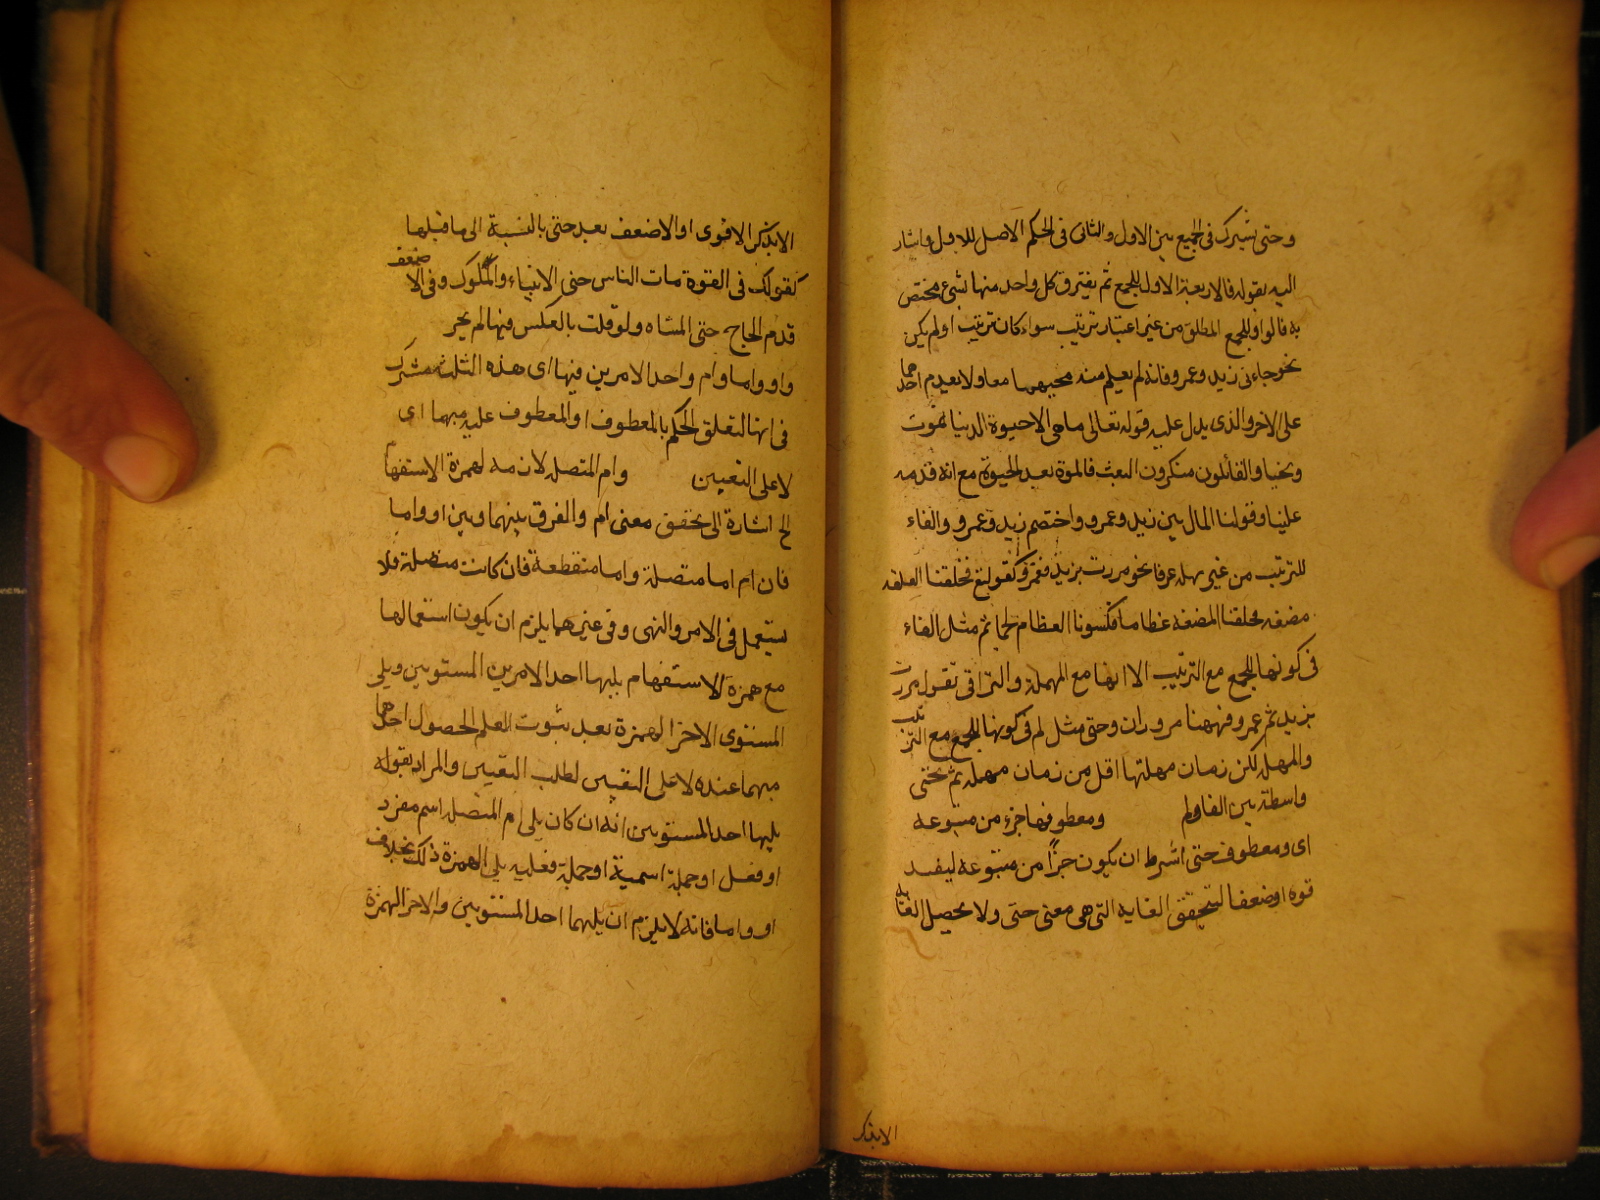 وحتى تشترك في الجميع بين الاول والثاني في الحكم الاصل للاول واشار
اليه بقوله فالاربعة الاول للجمع ثم يفترق كل واحد منها بشيء مختص
به فالواو للجمع المطلق من غير اعتبار ترتيب سواء كان ترتيب او لم يكن
نحو جاءني زيد وعمرو فانه لم يعلم منه مجيهما معا ولا بعدم احدهما
على الاخر والذي يدل عليه قوله تعالى ما هي الا حيوة الدنيا نموت
ونحيا والقائلون منكرون البعث فالموة بعد الحيوة مع انه قدمه
علينا وقولنا المال بين زيد وعمرو واختصم زيد وعمرو والفاء
للترتيب من غير مهله عرفا نحو مررت بزيد فعمرو كقولنع فخلقنا العلقه
مضغه فخلقنا المضغه عظاما فكسونا العظام لحما ثم مثل الفاء
في كونها للجمع مع الترتيب الا انها مع المهملة والتراقي تقول مررت
بزيد ثم عمرو فههنا مروران وحتى مثل لم في كونها للجمع مع الترتيب
والمهله لكن زمان مهلتها اقل من زمان مهله ثم فحتى
واسطة بين الفا ولم ومعطوفها جزء من متبوعه
اي ومعطوف حتى اشرط ان يكون جزًا من متبوعه ليفيد
قوه او ضعفا لتحقق الغايه التي هي معنى حتى ولا يحصل الغايه
الا بذكر
الا بذكر الاقوى او الاضعف بعد حتى بالنسبة الى ما قبلها
كقولك في القوة مات الناس حتى الانبياء والملوك وفي الاضعف
قدم الحاج حتى المشاه ولو قلت بالعكس فيها لم يجر
واو واما وام واحد الامرين فيها اي هذه الثلث مشترك
في انها لتعلق الحكم بالمعطوف او المعطوف عليه مبهما اي
لا على التعيين وام المتصل لازمه لهمزة الاستفها
الخ اشارة الى تحقق معنى ام والفرق بينهما وبين او واما
فان ام اما متصلة واما منقطعة فان كانت متصلة فلا
يستعمل في الامر والنهى وفي غيرهما يلزم ان يكون استعمالها
مع همزة الاستفهام يليها احد الامرين المستويين ويلي
المستوى الاخر الهمزة بعد ثبوت العلم لحصول احدهما
مبهما عنده لا على التعيين لطلب التعيين والمراد بقوله
يليها احد المستويين انه ان كان يلي ام المتصل اسم مفرد
او فعل او جملة اسمية او جملة فعليه يلي الهمزة ذلك بخلاف
او واما فانه لا يلزم ان يليهما احد المستويين والاخر الهمزة